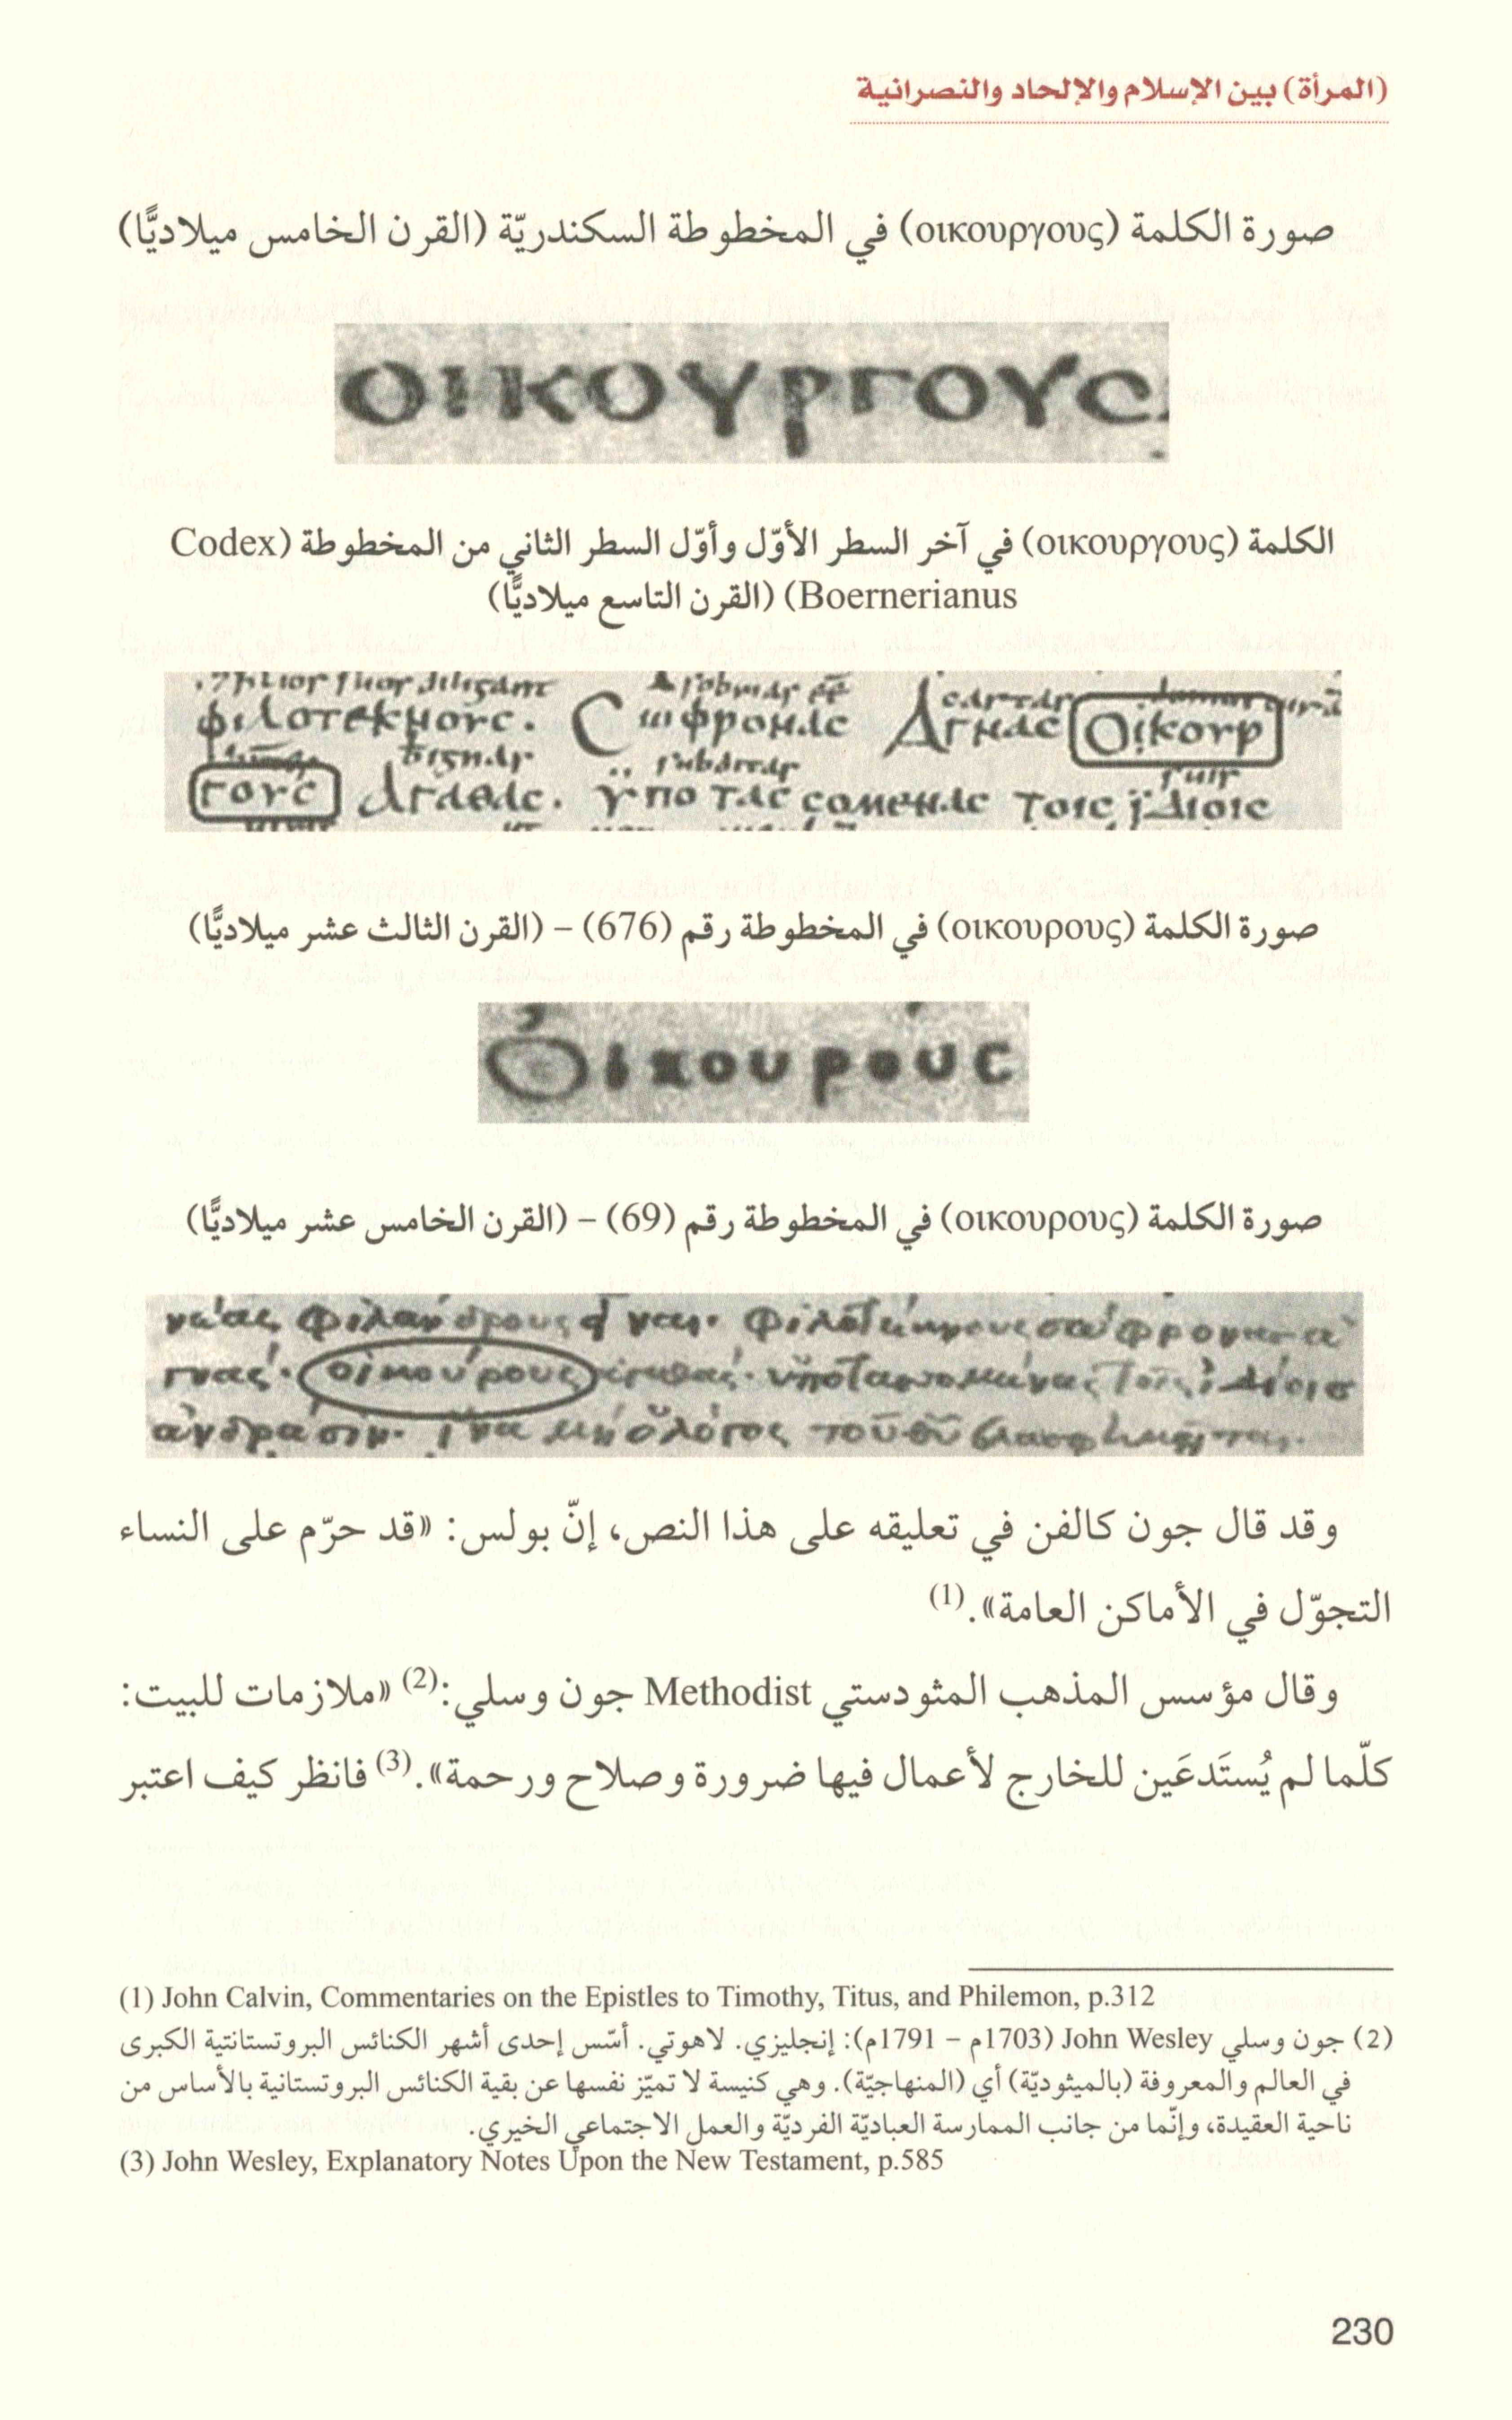 (المرأة) بين الإسلام والإلحاد والنصرانية
صورة الكلمة (οικουργους) في المخطوطة السكندريّة (القرن الخامس ميلاديًّا)
ΟΙΚΟΥΡΓΟΥΣ
الكلمة (οικουργους) في آخر السطر الأوّل وأوّل السطر الثاني من المخطوطة (Codex
Boernerianus) (القرن التاسع ميلاديًّا)
φιλοτεκνους. Σωφρονας Αγνας Οικουρ
γους Αγαθας. ϋποτασσομενας τοις ϊδιοις
صورة الكلمة (οικουρους) في المخطوطة رقم (676) – (القرن الثالث عشر ميلاديًّا)
Οἰκουρούς
صورة الكلمة (οικουρους) في المخطوطة رقم (69) – (القرن الخامس عشر ميلاديًّا)
φιλάνδρους
γνάς· οἰκουρους ἀγαθάς· ὑποτασσομένας τοῖς ἰδίοις
ἀνδράσιν. ἵνα μὴ ὁ λόγος τοῦ θῦ βλασφημῆται.
وقد قال جون كالفن في تعليقه على هذا النص، إنّ بولس: «قد حرّم على النساء
التجوّل في الأماكن العامة».(1)
وقال مؤسس المذهب المثودستي Methodist جون وسلي:(2) «ملازمات للبيت:
كلّما لم يُستَدعَين للخارج لأعمال فيها ضرورة وصلاح ورحمة».(3) فانظر كيف اعتبر
(1) John Calvin, Commentaries on the Epistles to Timothy, Titus, and Philemon, p.312
(2) جون وسلي John Wesley (1703م – 1791م): إنجليزي. لاهوتي. أسّس إحدى أشهر الكنائس البروتستانتية الكبرى
في العالم والمعروفة (بالميثوديّة) أي (المنهاجيّة). وهي كنيسة لا تميّز نفسها عن بقية الكنائس البروتستانية بالأساس من
ناحية العقيدة، وإنّما من جانب الممارسة العباديّة الفرديّة والعمل الاجتماعي الخيري.
(3) John Wesley, Explanatory Notes Upon the New Testament, p.585
230